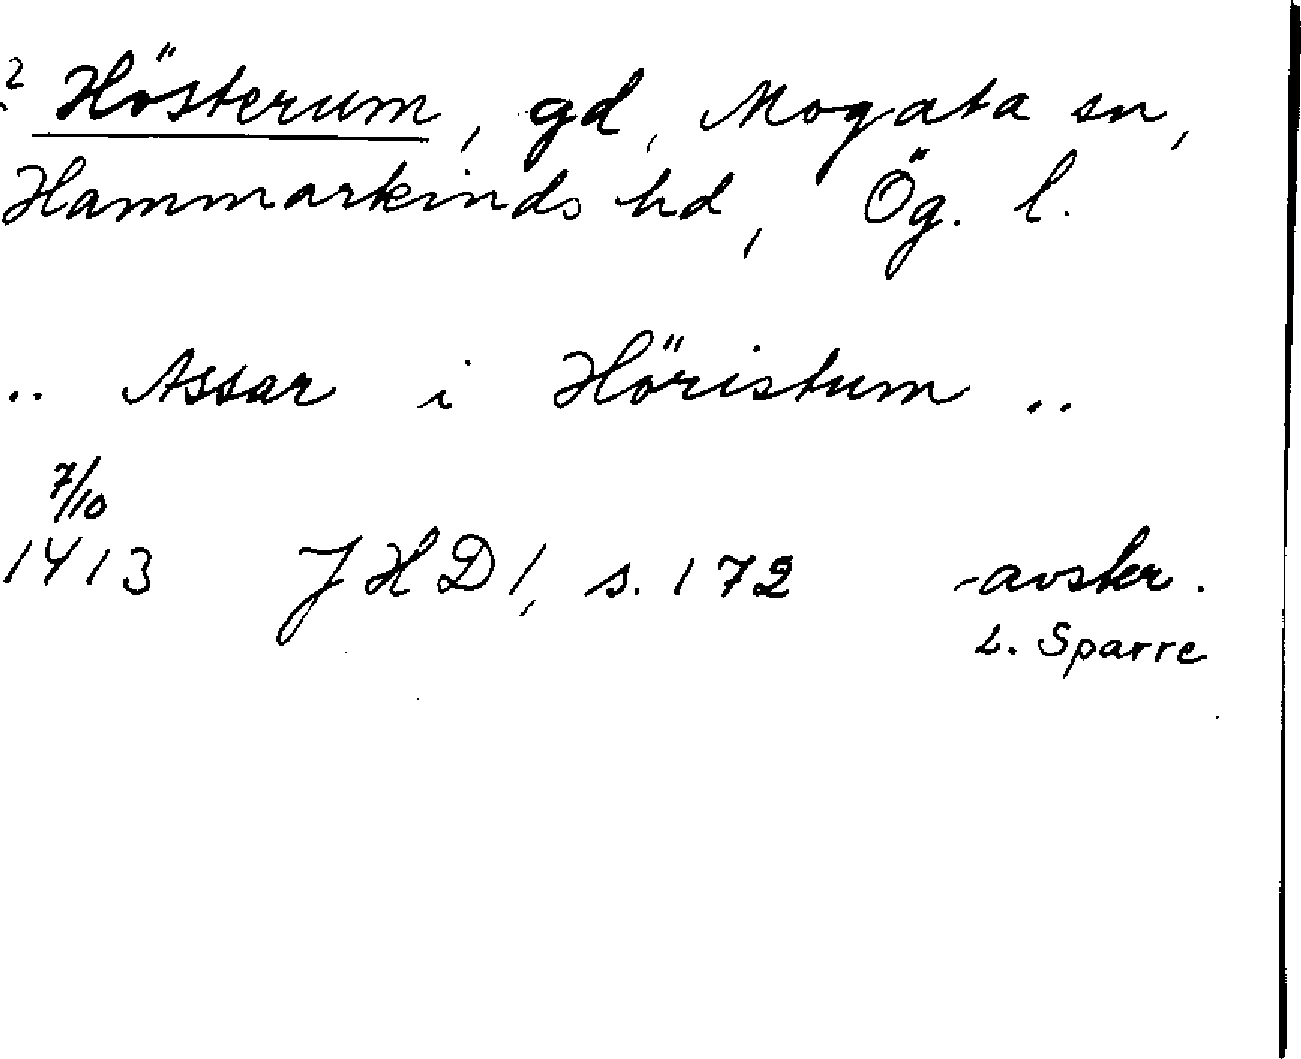 ? Hösterum, gd, Mogata sn,
Hammarkinds hd, Ög. l.
.. Assar i Höristum ..
7/10
1413 JHD 1, s. 172 avskr.
L. Sparre